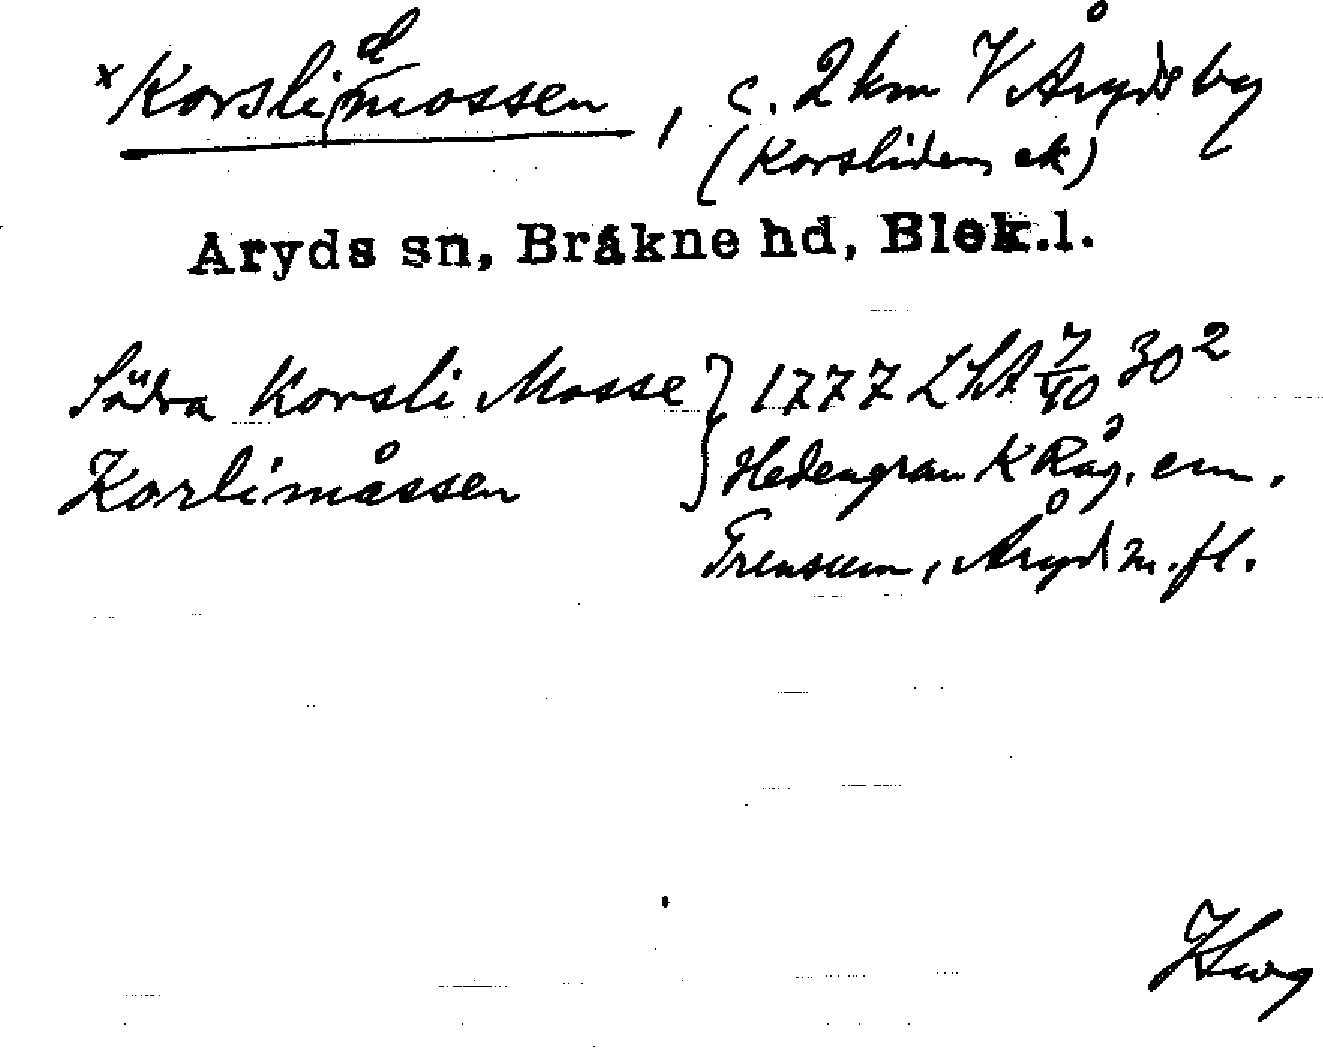 *Korslidmossen, c. 2 km V Åryds by
(Korsliden, ek)
Åryds sn, Bräkne hd, Blek.l.
Södra Korsli Mosse } 1777 LSA 7/40 30²
Korslimåssen } Hedengran K Råg. em.
Trensum, Åryd m.fl.